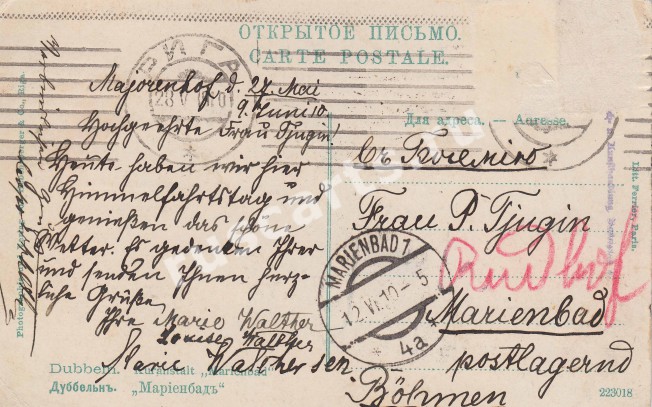 ОТКРЫТОЕ ПИСЬМО.
CARTE POSTALE.
РИГА
28 V
Majorenhof d. 27. Mai
9. Juni 10
Hochgeehrte Frau Tjugin!
Heute haben wir hier
Himmelfahrtstag und
genießen das schöne
Wetter. Es gedenken Ihrer
und senden Ihnen herz-
liche Grüße
Ihre Marie Walther
Louise Walther
Marie Walther sen.
Для адреса. — Adresse.
Въ Богемію
Frau P. Tjugin
Marienbad
postlagernd
Böhmen
MARIENBAD 1
12 VI 10 - 5
* 4a *
Dubbeln. Kuranstalt „Marienbad"
Дуббельнъ. „Маріенбадъ"
223018